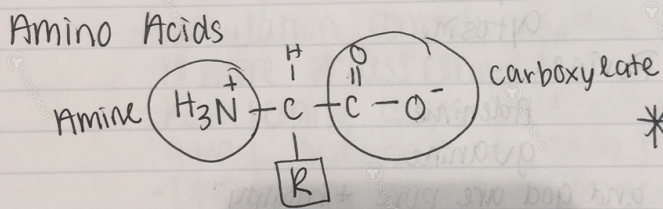 Amino Acids
H O
Amine H₃N⁺ – C – C – O⁻ carboxylate
R *